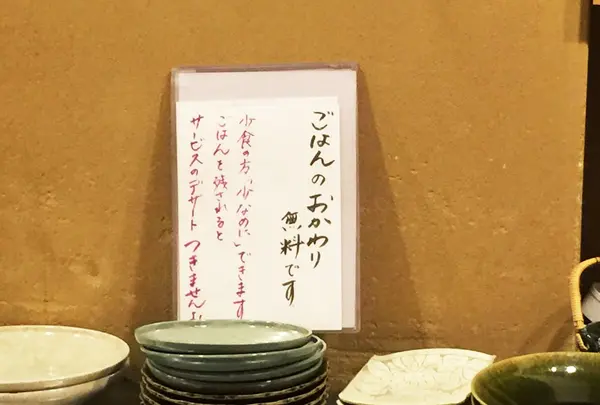 ごはんのおかわり
無料です
少食の方、「少なめに」できます
ごはんを残されると
サービスのデザートつきません!!